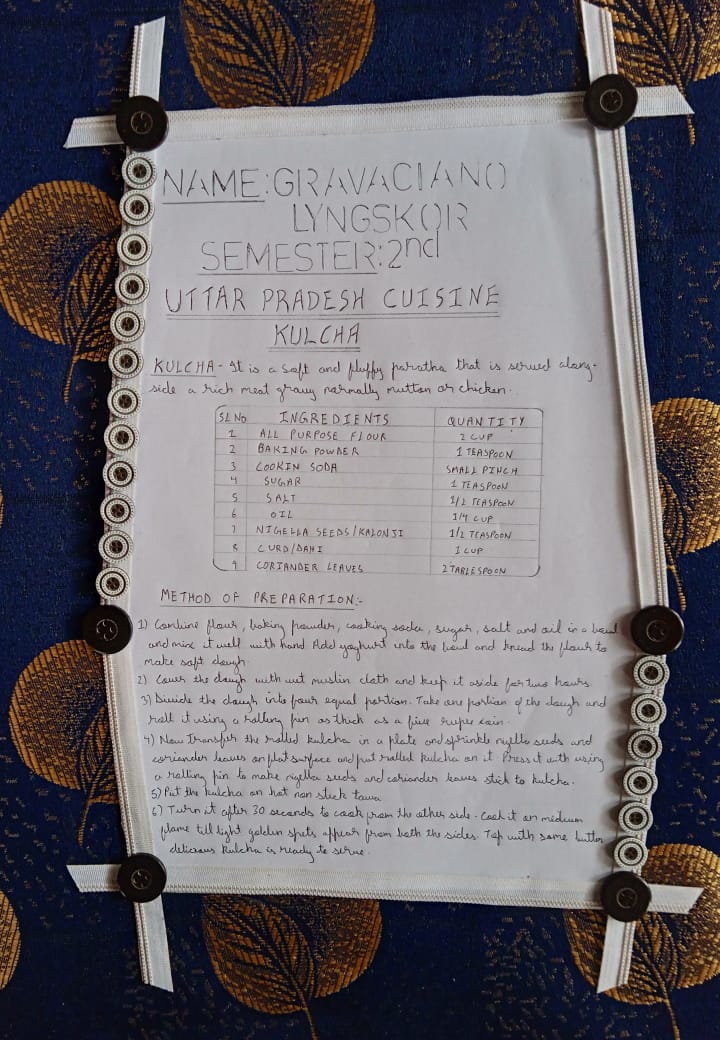 NAME: GRAVACIANO
LYNGSKOR
SEMESTER: 2nd
UTTAR PRADESH CUISINE
KULCHA
KULCHA - It is a soft and fluffy paratha that is served along-
side a rich meat gravy normally mutton or chicken.
SL NO INGREDIENTS QUANTITY
1 ALL PURPOSE FLOUR 2 CUP
2 BAKING POWDER 1 TEASPOON
3 COOKIN SODA SMALL PINCH
4 SUGAR 1 TEASPOON
5 SALT 1/2 TEASPOON
6 OIL 1/4 CUP
7 NIGELLA SEEDS/KALONJI 1/2 TEASPOON
8 CURD/DAHI 1 CUP
9 CORIANDER LEAVES 2 TABLESPOON
METHOD OF PREPARATION:-
1) Combine flour, baking powder, cooking soda, sugar, salt and oil in a bowl
and mix it well with hand Add yoghurt into the bowl and knead the flour to
make soft dough.
2) Cover the dough with wet muslin cloth and keep it aside for two hours.
3) Divide the dough into four equal portion. Take one portion of the dough and
roll it using a rolling pin as thick as a five rupee coin.
4) Now Transfer the rolled kulcha in a plate and sprinkle nigella seeds and
coriander leaves on flat surface and put rolled kulcha on it Press it with using
a rolling pin to make nigella seeds and coriander leaves stick to kulcha.
5) Put the kulcha on hot non stick tawa
6) Turn it after 30 seconds to cook from the other side. Cook it on medium
flame till light golden spots appear from both the sides. Top with some butter
delicious kulcha is ready to serve.